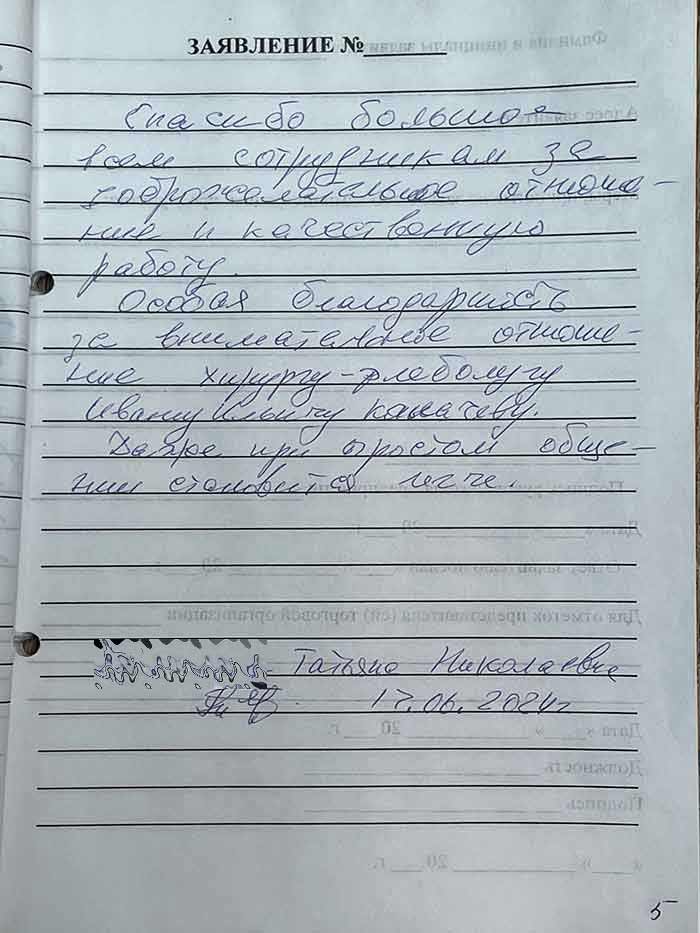 ЗАЯВЛЕНИЕ №
Спасибо большое
всем сотрудникам за
доброжелательное отноше-
ние и качественную
работу.
Особая благодарность
за внимательное отноше-
ние хирургу-флебологу
Ивану Ильичу Калачеву.
Даже при простом обще-
нии становится легче.
Татьяна Николаевна
17.06.2024г
5